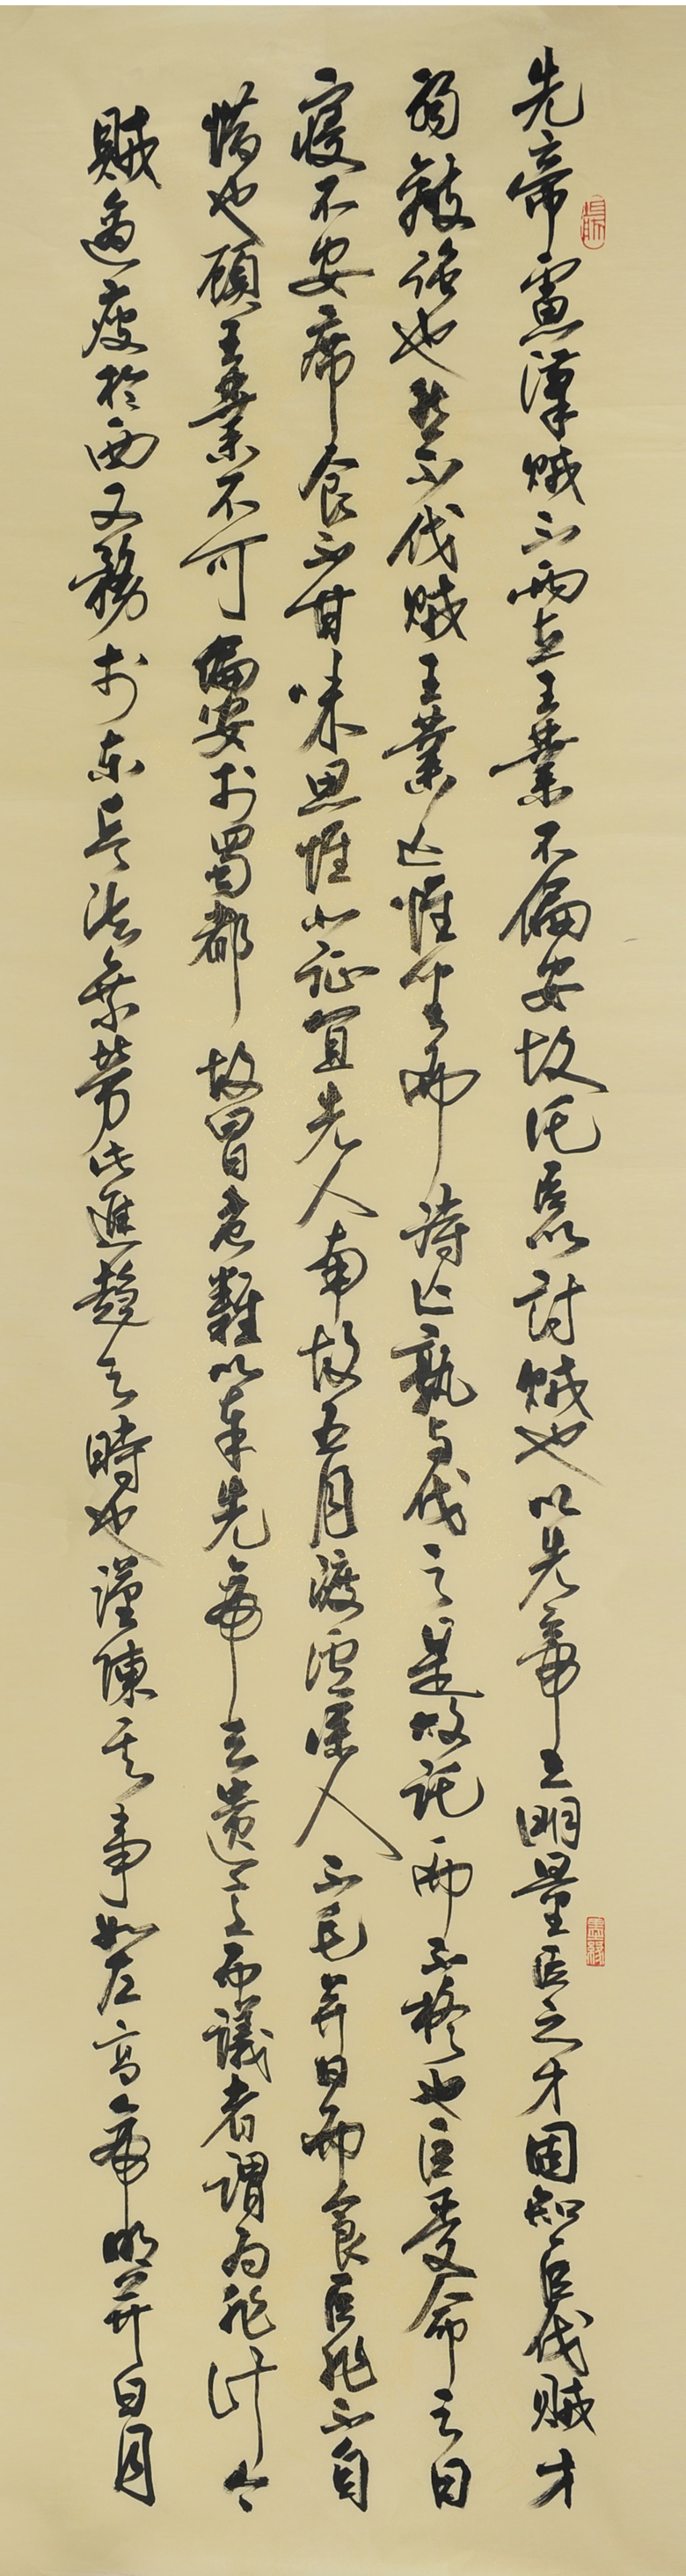 先帝慮漢賊不兩立王業不偏安故託臣以討賊也以先帝之明量臣之才固知臣伐賊才
弱敵強也然不伐賊王業亡惟坐而待亡孰与伐之是故託而不疑也臣受命之日
寢不安席食不甘味思惟北征宜先入南故五月渡瀘深入不毛并日而食臣非不自
惜也顧王業不可偏安於蜀都故冒危難以奉先帝之遺意而議者謂為非計今
賊適疲於西又務於東兵法乘勞此進趨之時也謹陳其事如左高帝明并日月
墨緣